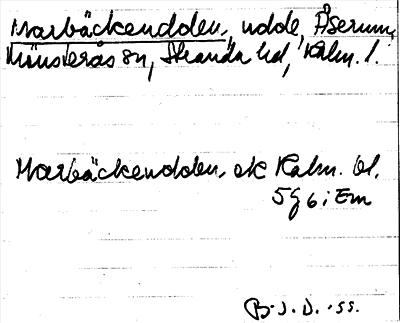 Marbäckeudden, udde, Åserum,
Mönsterås sn, Stranda hd, Kalm. l.
Marbäckeudden ek Kalm. bl.
5g 6i Em
B.J.D. -55.